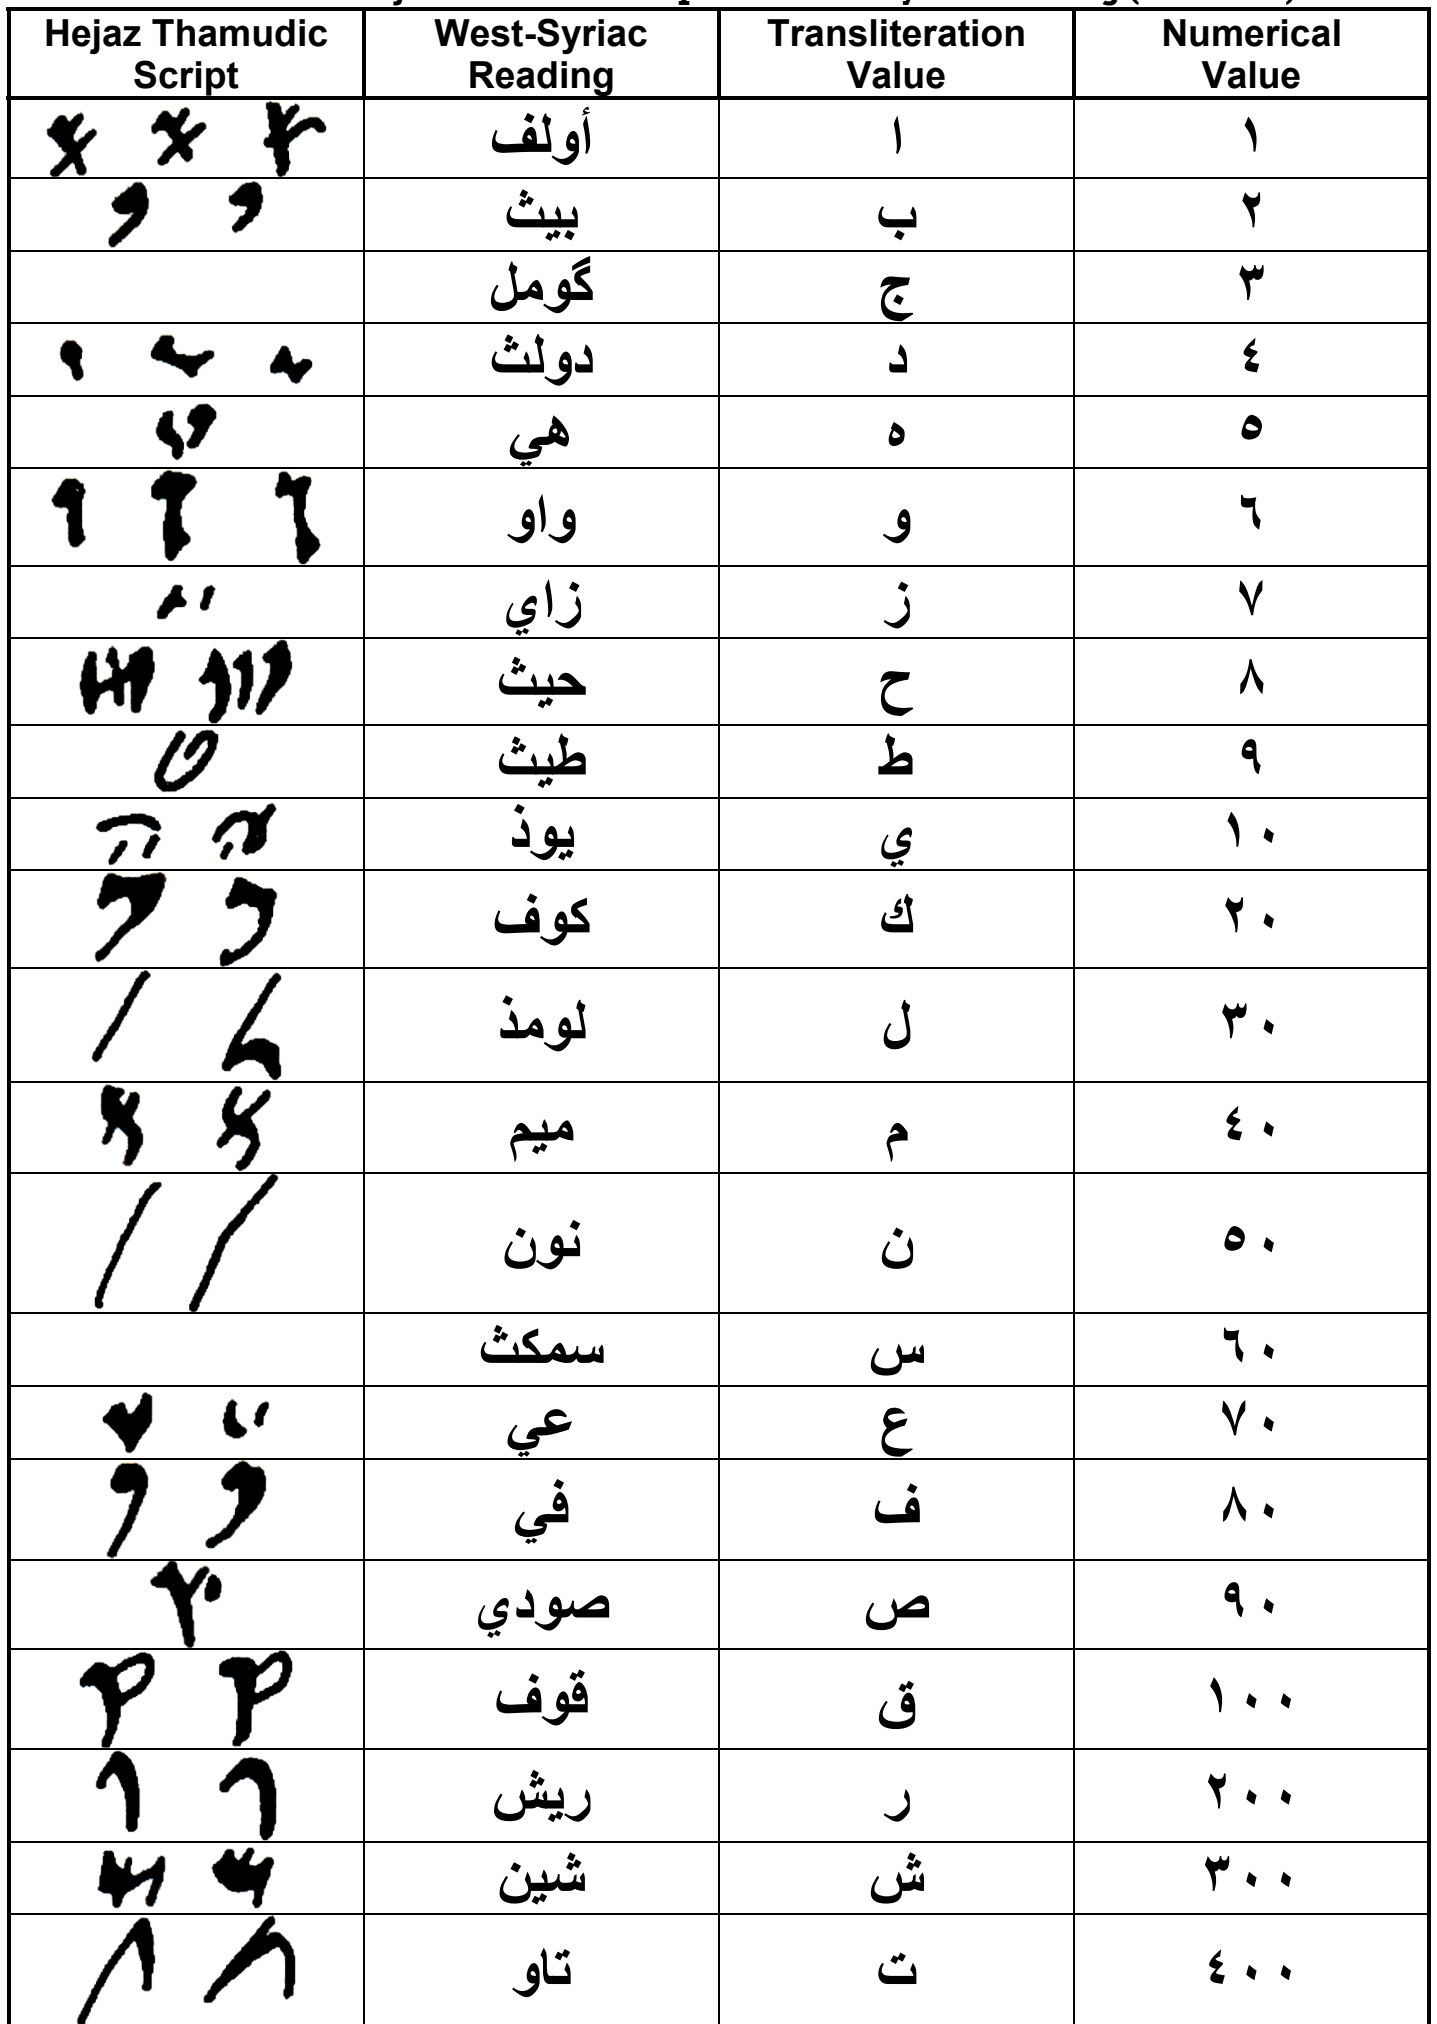 Hejaz Thamudic Script | West-Syriac Reading | Transliteration Value | Numerical Value
أولف | ا | ١
بيث | ب | ٢
گومل | ج | ٣
دولث | د | ٤
هي | ه | ٥
واو | و | ٦
زاي | ز | ٧
حيث | ح | ٨
طيث | ط | ٩
يوذ | ي | ١٠
كوف | ك | ٢٠
لومذ | ل | ٣٠
ميم | م | ٤٠
نون | ن | ٥٠
سمكث | س | ٦٠
عي | ع | ٧٠
في | ف | ٨٠
صودي | ص | ٩٠
قوف | ق | ١٠٠
ريش | ر | ٢٠٠
شين | ش | ٣٠٠
تاو | ت | ٤٠٠